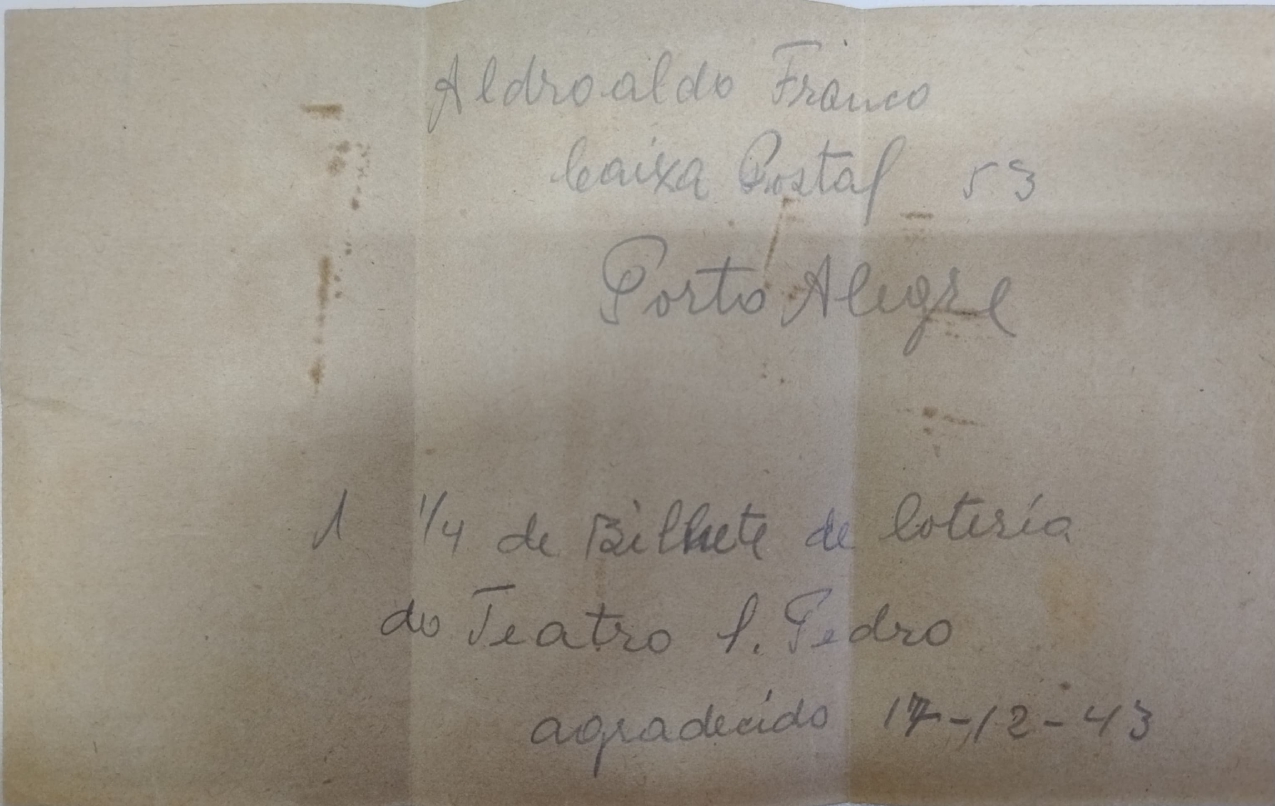 Aldroaldo Franco
Caixa Postal 53
Porto Alegre
1 1/4 de Bilhete de loteria
do Teatro S. Pedro
agradecido 17-12-43